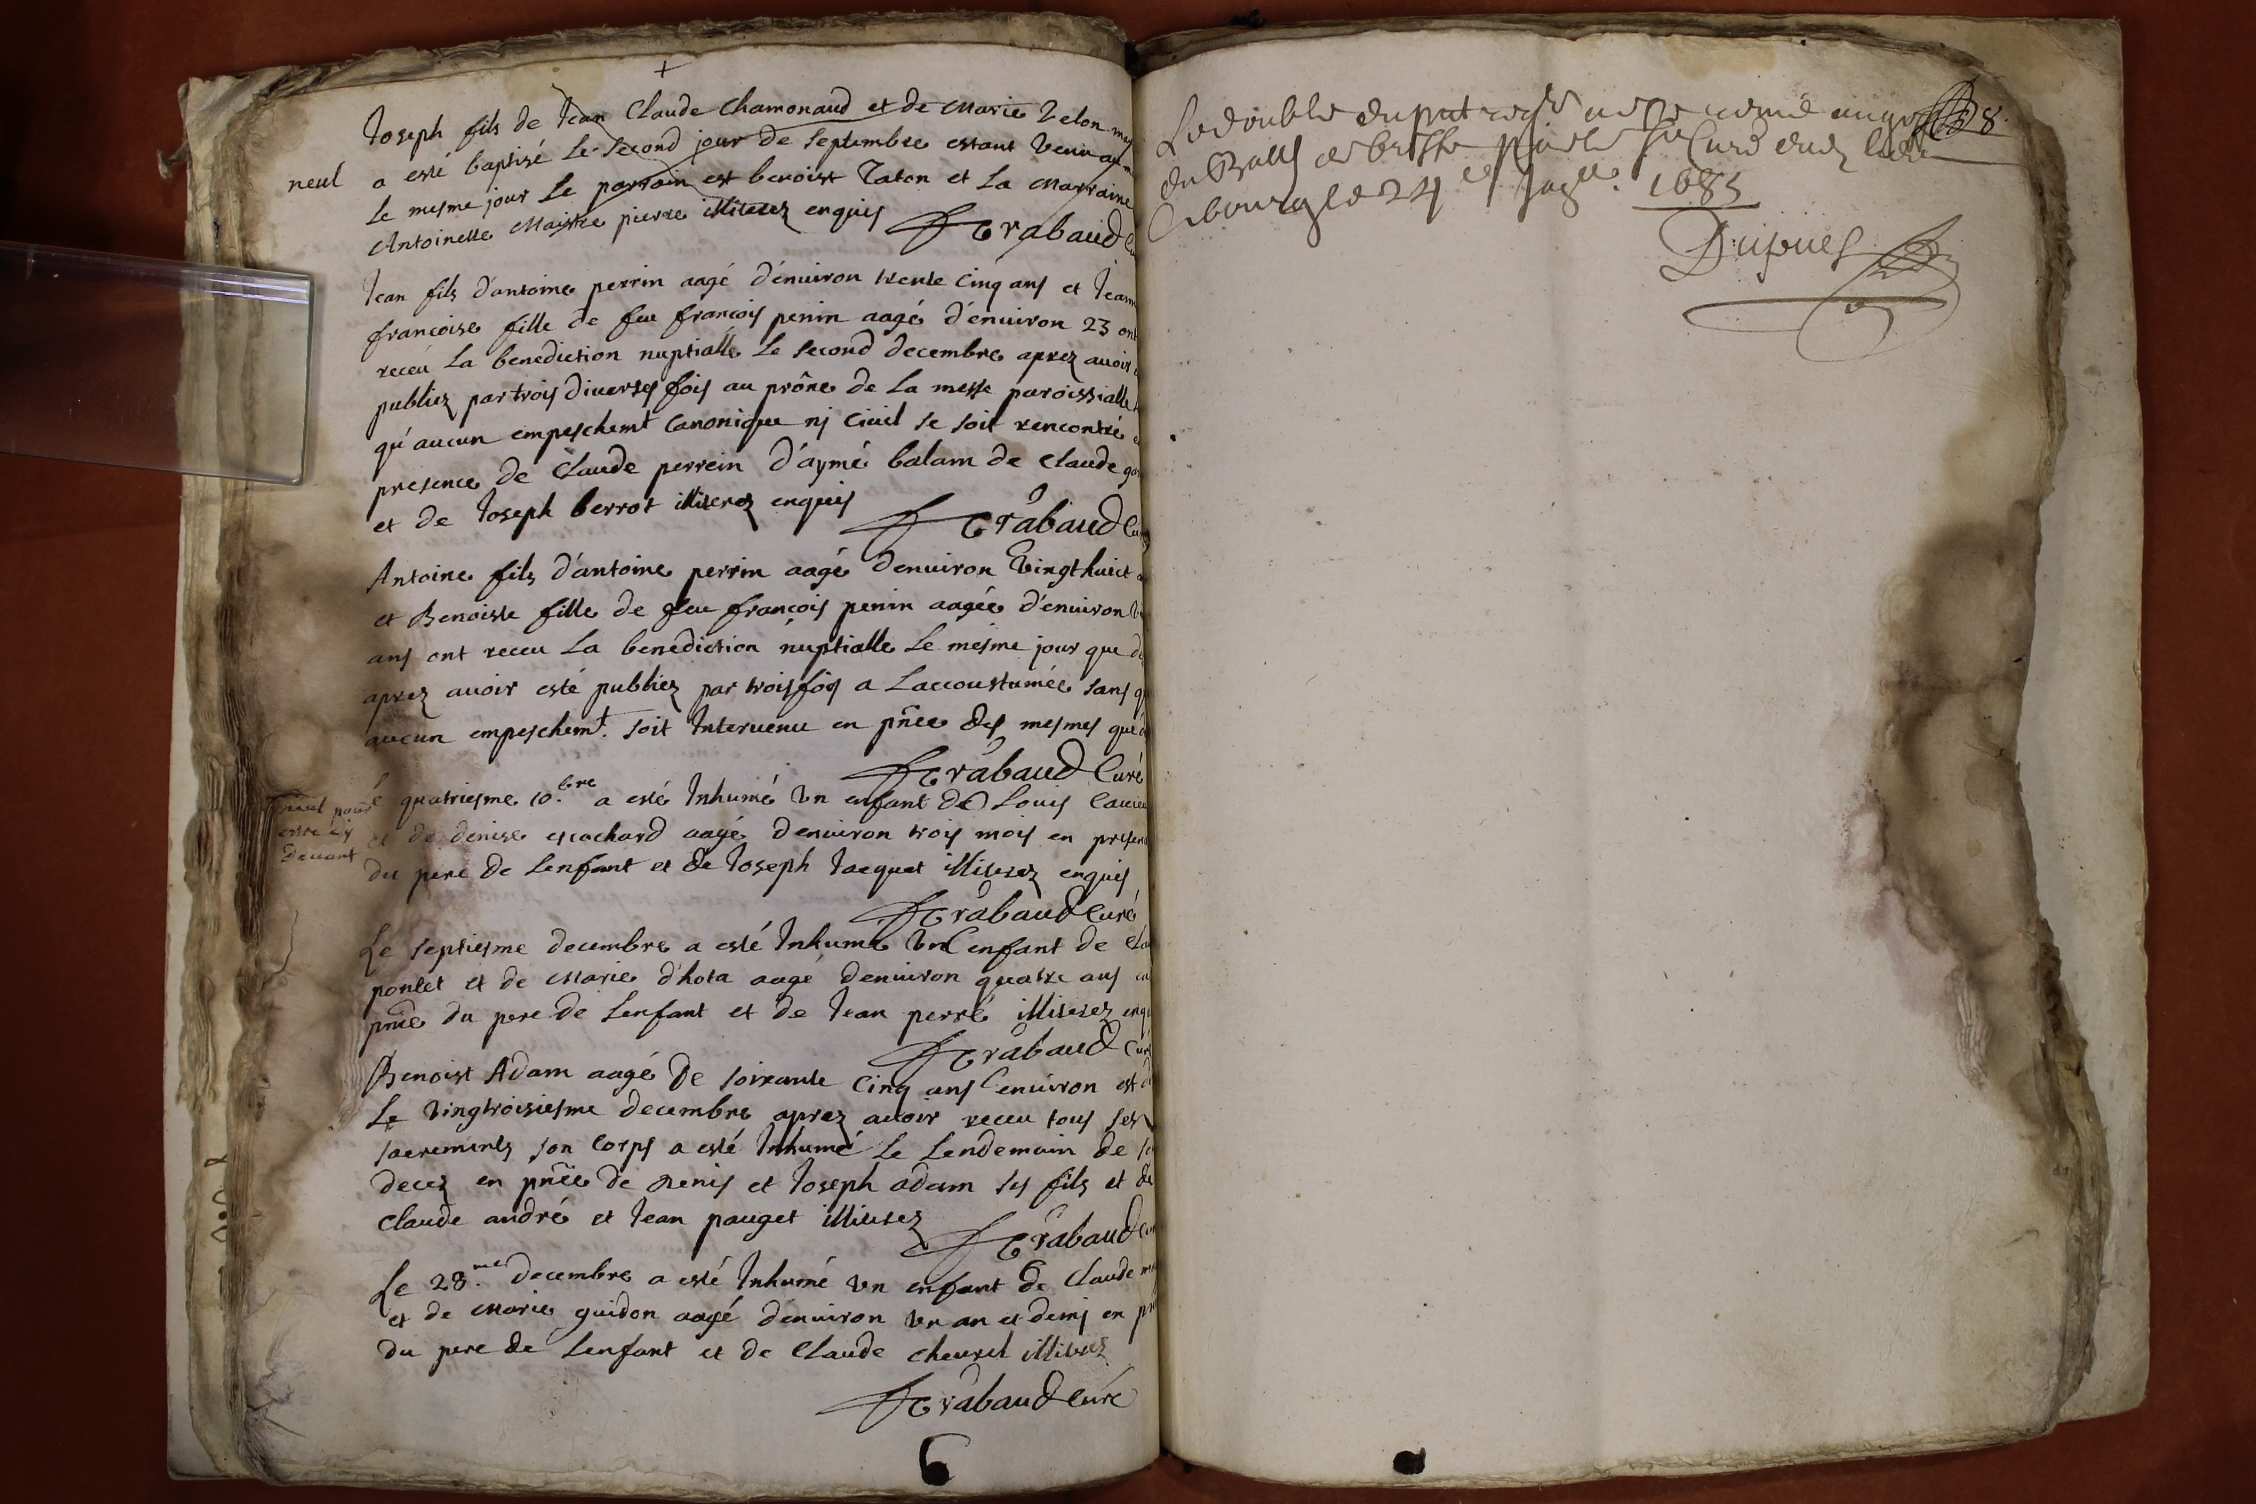 Joseph fils de Jean Claude Chamonaud et de Marie Velon
neul a esté baptisé le second jour de septembre estant venu au
le mesme jour le parrain est benoist Taton et la Marraine
Antoinette Maistre pierre illiterez enquis
Trabaud
Jean fils d'antoine perrin aagé d'enuiron trente cinq ans et Jeann
francoise fille de feu francois penin aagé d'enuiron 23 ont
receu la benediction nuptialle le second decembre aprez auoir
publiez par trois diuerses fois au prône de la messe paroissialle
qu'aucun empeschemt Canonique nj Ciuil se soit rencontré
presence de Claude perrein d'aymé balam de Claude
et de Joseph berrot illiterez enquis
Trabaud
Antoine fils d'antoine perrin aagé d'enuiron vingt huict
et Benoiste fille de feu françois penin aagée d'enuiron
ans ont receu la benediction nuptialle le mesme jour que
aprez auoir esté publiez par trois fois a l'accoustumée sans
aucun empeschemt. soit Interuenu en pnce des mesmes que
Trabaud Curé
neul pour
estre cy
deuant
quatriesme 10.bre a esté Inhumé vn enfant de Louis
et de denise cochard aagé d'enuiron trois mois en presen
du pere de L'enfant et de Joseph Jacquet illiterez enquis
Trabaud Curé
Le septiesme decembre a esté Inhumé vn enfant de
poncet et de Marie d'hota aagé d'enuiron quatre ans
pnce du pere de L'enfant et de Jean perré illiterez enq
Trabaud Curé
Benoist Adam aagé de soixante Cinq ans enuiron est
Le vingtroisiesme decembre aprez auoir receu tous ses
sacrements son Corps a esté Inhumé le lendemain de
decez en pnce de Denis et Joseph adam ses fils et de
Claude andré et Jean pauget illiterez
Trabaud
Le 28.me decembre a esté Inhumé vn enfant de Claude
et de Marie guidon aagé d'enuiron vn an et demj en
du pere de L'enfant et de Claude cheurel illiterez
Trabaud Curé
6
8.
Le double du pnt regre a esté remis au greffe
du Balle de bresse par le Sr Curé dud lieu
A bourg le 24e 1685
Dupuis